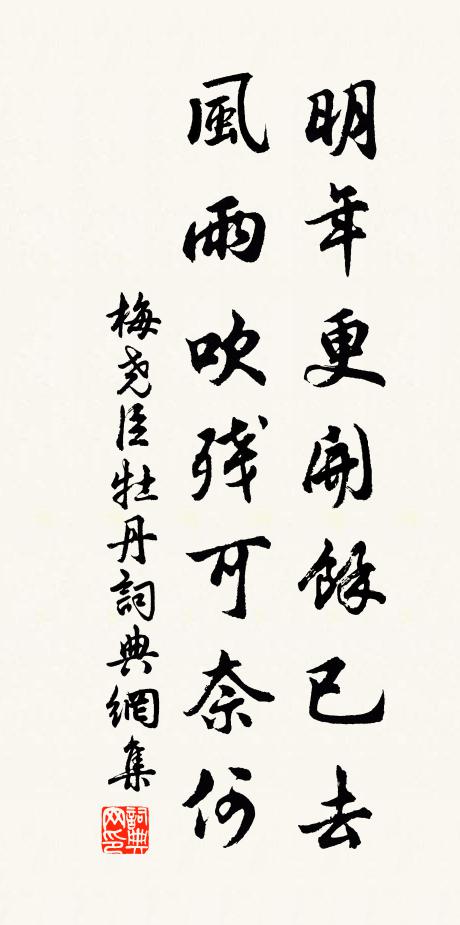 明年更開餘已去
風雨吹残可奈何
梅尧臣牡丹詞典網集
詞典
网印